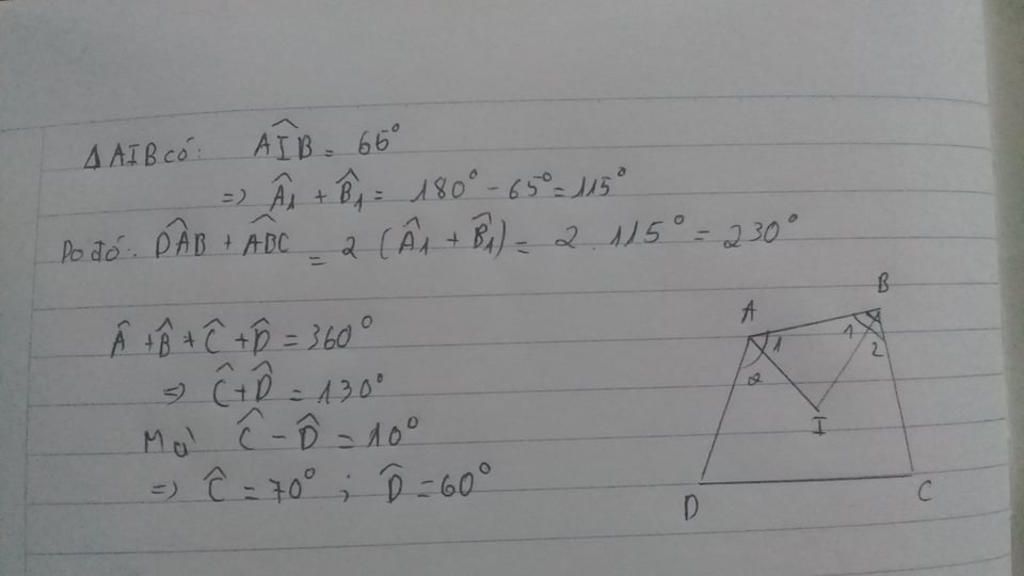 Δ AIB có: AÎB = 65°
=> Â1 + B̂1 = 180° - 65° = 115°
Do đó: DÂB + AB̂C = 2 (Â1 + B̂1) = 2 . 115° = 230°
Â + B̂ + Ĉ + D̂ = 360°
=> Ĉ + D̂ = 130°
Mà Ĉ - D̂ = 10°
=> Ĉ = 70° ; D̂ = 60°
B
A
1 1
2 2
I
D C